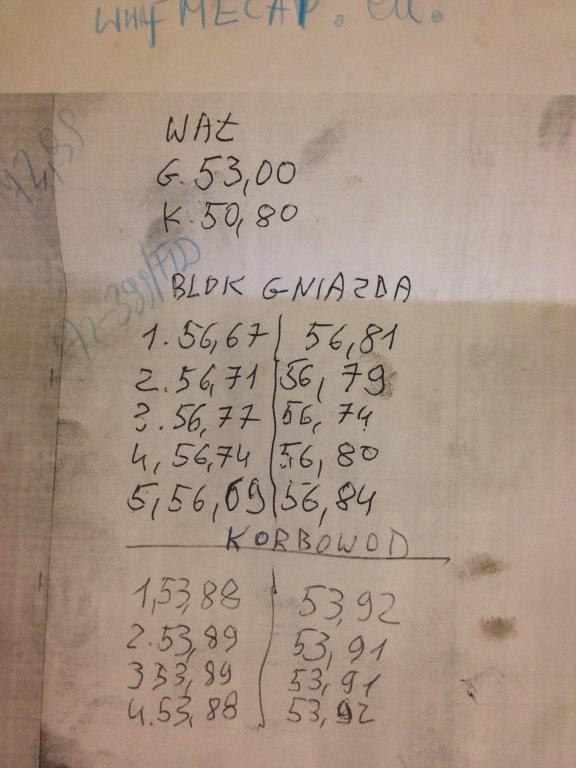 MECAP. eu.
WAŁ
G. 53,00
K. 50,80
BLOK GNIAZDA
1. 56,67 | 56,81
2. 56,71 | 56,79
3. 56,77 | 56,74
4, 56,74 | 56,80
5, 56,69 | 56,84
KORBOWOD
1,53,88 | 53,92
2. 53,89 | 53,91
3 53,89 | 53,91
4. 53,88 | 53,92